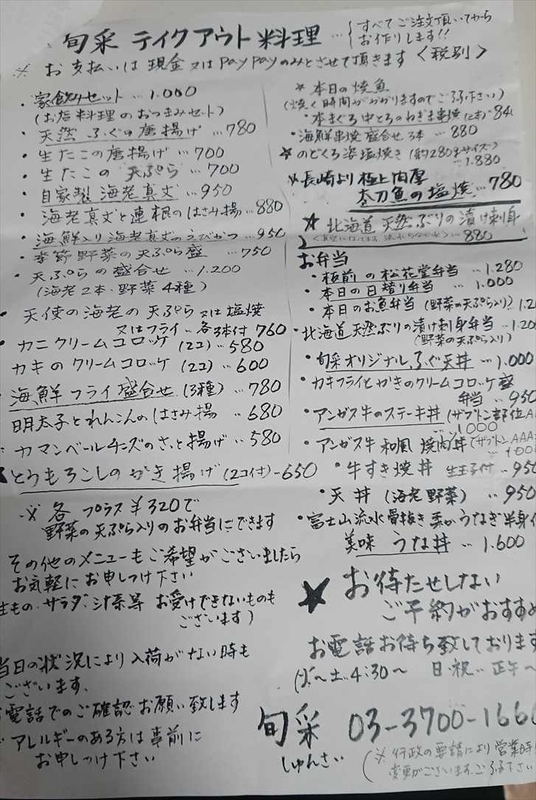 旬采 テイクアウト料理 … すべてご注文頂いてから
お作りします!!
※ お支払いは 現金 又は PayPayのみとさせて頂きます <税別>
・家飲みセット … 1.000
(お店料理のおつまみセット)
・天然 ふぐの唐揚げ … 780
・生たこの唐揚げ … 700
・生たこの 天ぷら … 700
・自家製 海老真丈 … 950
・海老真丈と蓮根のはさみ揚 … 880
・海鮮入り 海老真丈のえびかつ … 950
・季節野菜の天ぷら盛 … 750
・天ぷらの盛合せ … 1.200
(海老2本・野菜4種)
・天使の海老の 天ぷら 又は 塩焼
又はフライ … 各3本付 760
・カニクリームコロッケ (2コ) … 580
・カキのクリームコロッケ (2コ) … 600
・海鮮フライ盛合せ (3種) … 780
明太子とれんこんのはさみ揚 … 680
・カマンベールチーズのさっと揚げ … 580
★とうもろこしのかき揚げ (2コ付) … 650
※ 各 プラス ¥320で
野菜の天ぷら入りのお弁当にできます
その他のメニューもご希望がございましたら
お気軽に お申しつけ下さい
生もの・サラダ・汁系等 お受けできないものも
ございます)
当日の状況により入荷がない時も
ございます。
お電話でのご確認お願い致します
アレルギーのある方は事前に
お申しつけ下さい
★本日の焼魚
(焼く時間がかかりますのでご了承下さい)
・本まぐろ中とろのねぎま串焼(2本) … 84
・海鮮串焼 盛合せ 3本 … 880
★のどくろ姿塩焼き (約280gサイズ)
… 1.880
★長崎より 極上肉厚
本刀魚の塩焼 … 780
★北海道 天然ぶりの漬け刺身
… 880
お弁当
・板前の松花堂弁当 … 1.280
・本日の日替り弁当 … 1.000
・本日のお魚弁当 (野菜の天ぷら入り)
・北海道天然ぶりの漬け刺身弁当 … 1.20
(野菜の天ぷら入り)
・旬采オリジナル ふぐ天丼 … 1.000
・カキフライとかきのクリームコロッケ盛
弁当 … 950
・アンガス牛のステーキ丼 (ザブトン部位AA
… 1000
・アンガス牛 和風焼肉丼 (ザブトンAAA
… 1000
・牛すき焼丼 生玉子付 … 950
・天丼 (海老野菜) … 950
・富士山流水骨抜き うなぎ半身
美味 うな丼 … 1.600
★お待たせしない
ご予約がおすすめ
お電話お待ち致しております
土 4:30〜 日・祝… 正午〜
旬采 03-3700-166
しゅんさい
(※行政の要請により営業時
変更がございます。ご了承下さい